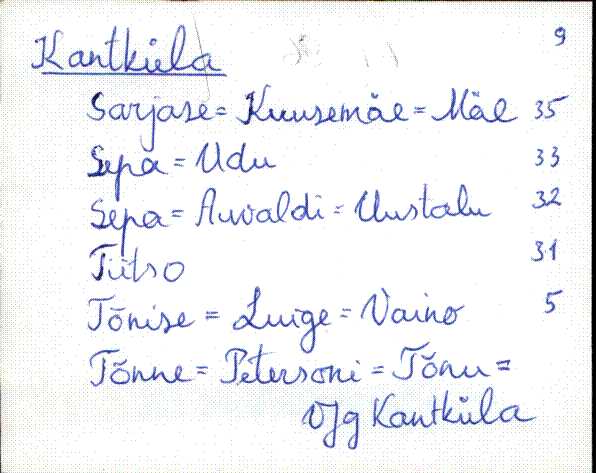 9
Kantküla
Sarjase = Kuusemäe = Mäe 35
Sepa = Udu 33
Sepa = Auvaldi = Uustalu 32
Tiitso 31
Tõnise = Luige = Vaino 5
Tõnne = Petersoni = Tõnu =
Vjg Kantküla